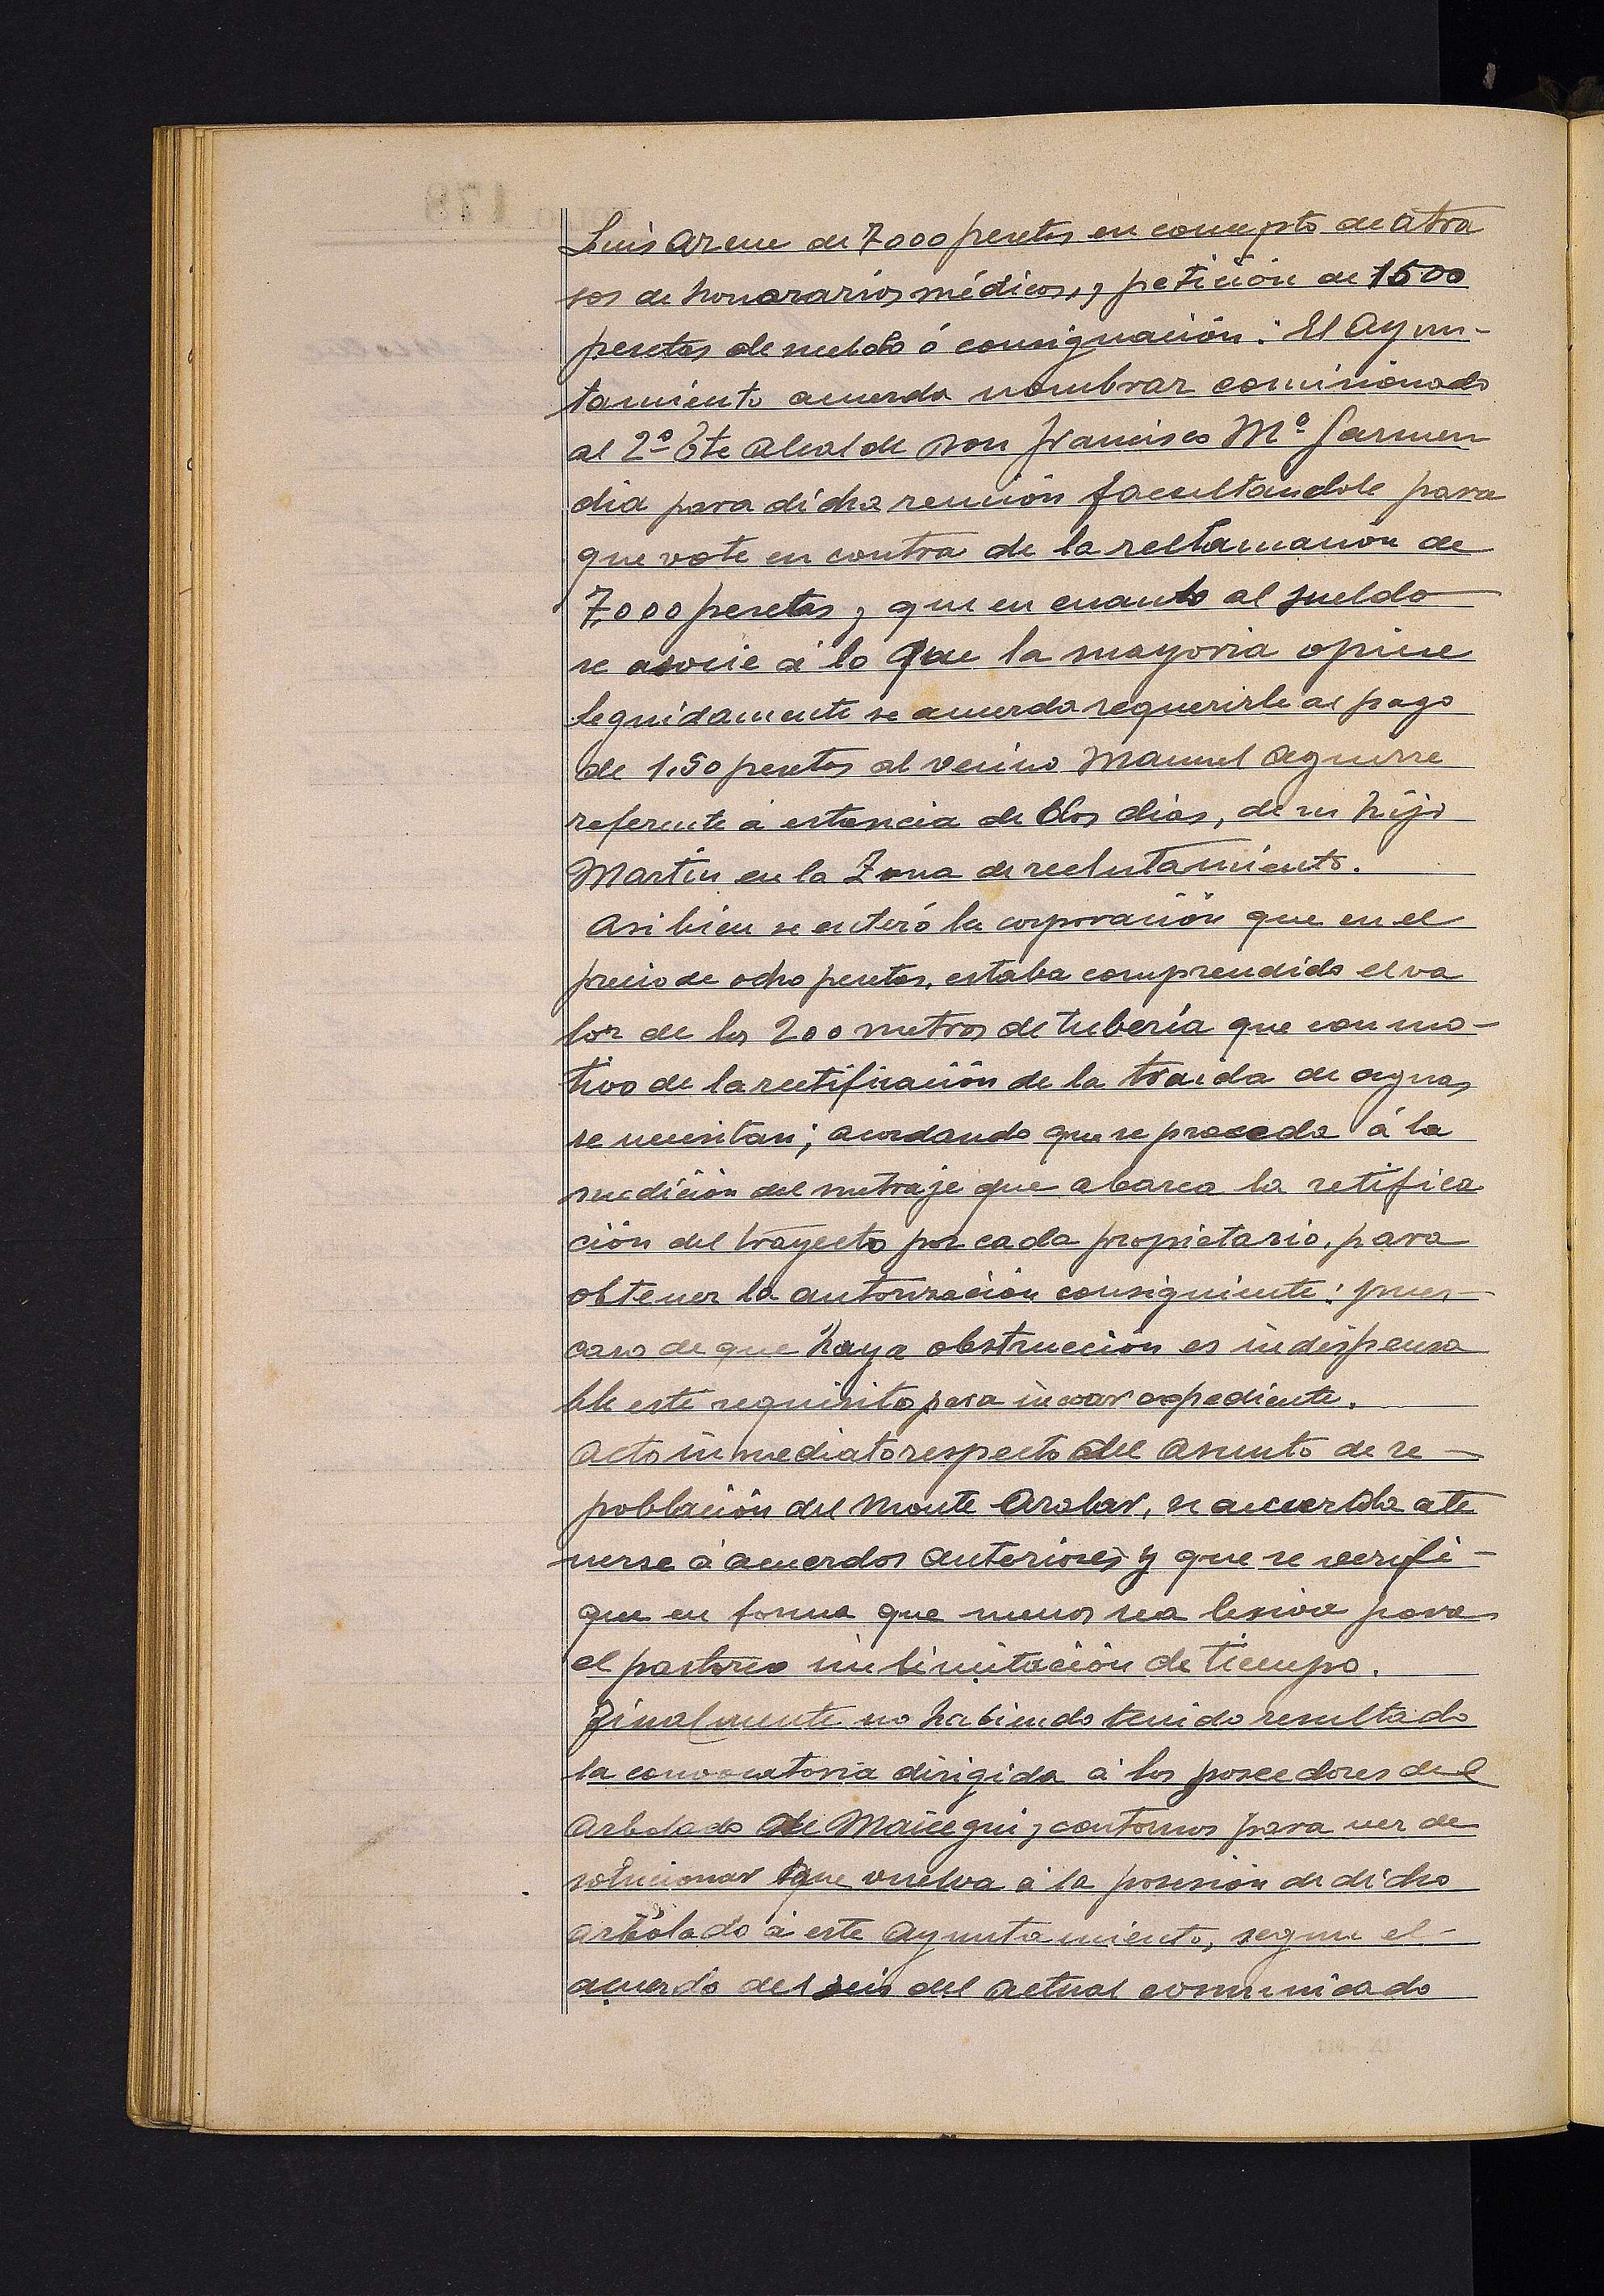 Luis Arene de 7000 pesetas en concepto de atra
sos de honorarios médicos, y petición de 1500
pesetas de sueldo ó consignación: El Ayun-
tamiento acuerda nombrar comisionado
al 2º Tte Alcalde Don Francisco Mª Garmen
dia para dicha reunión facultandole para
que vote en contra de la reclamación de
7,000 pesetas y que en cuanto al sueldo
se asocie á lo que la mayoria opine
Seguidamente se acuerda requerirle al pago
de 1.50 pesetas al vecino Manuel Aguirre
referente á estancia de dos dias, de su hijo
Martin en la Zona de reclutamiento.
Asi bien se enteró la corporación que en el
precio de ocho pesetas, estaba comprendido el va
lor de los 200 metros de tuberia que con mo-
tivo de la rectificación de la traida de aguas
se necesitan; acordando que se proceda á la
medición del metraje que abarca la retifica
ción del trayecto por cada propietario, para
obtener la autorización consiguiente: pues-
caso de que haya obstrucción es indispensa
ble este requisito para incoar expediente.
Acto inmediato respecto del asunto de re-
población del monte Aralar, se acuerda ate
nerse á acuerdos anteriores y que se verifi-
que en forma que menos sea lesiva para
el pastoreo sin limitación de tiempo.
Finalmente no habiendo tenido resultado
la convocatoria dirigida á los poseedores del
Arbolado de y contornos para ver de
solucionar que vuelva á la posesión de dicho
arbolado á este Ayuntamiento, segun el-
acuerdo del seis del actual comunicado